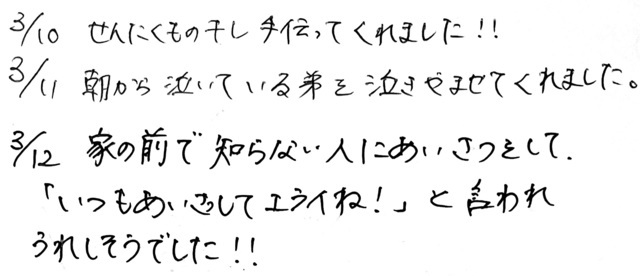 3/10 せんたくもの干し手伝ってくれました!!
3/11 朝から泣いている弟を泣きやませてくれました。
3/12 家の前で知らない人にあいさつをして、
「いつもあいさつしてエライね!」と言われ
うれしそうでした!!